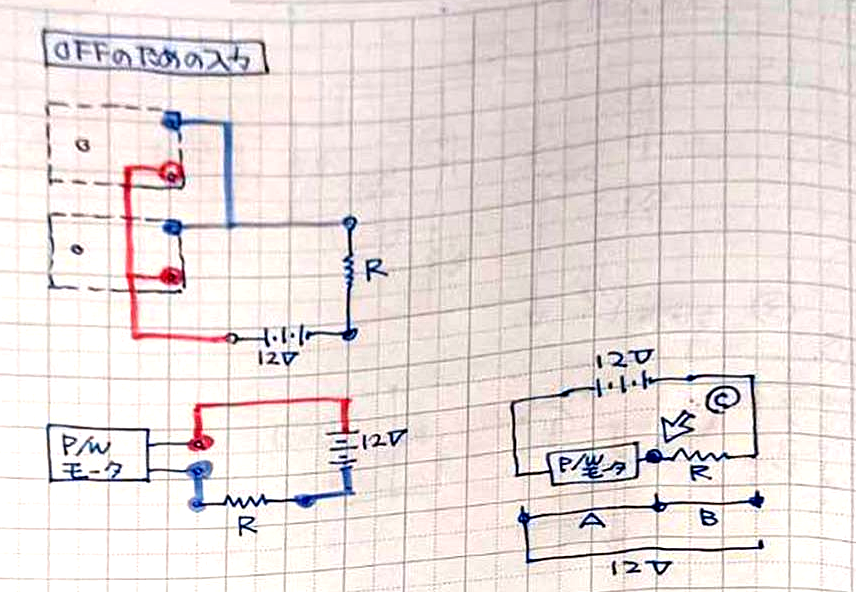 OFFのための入力
R
12V
P/W
モータ
12V
R
12V
C
P/Wモータ
R
A
B
12V